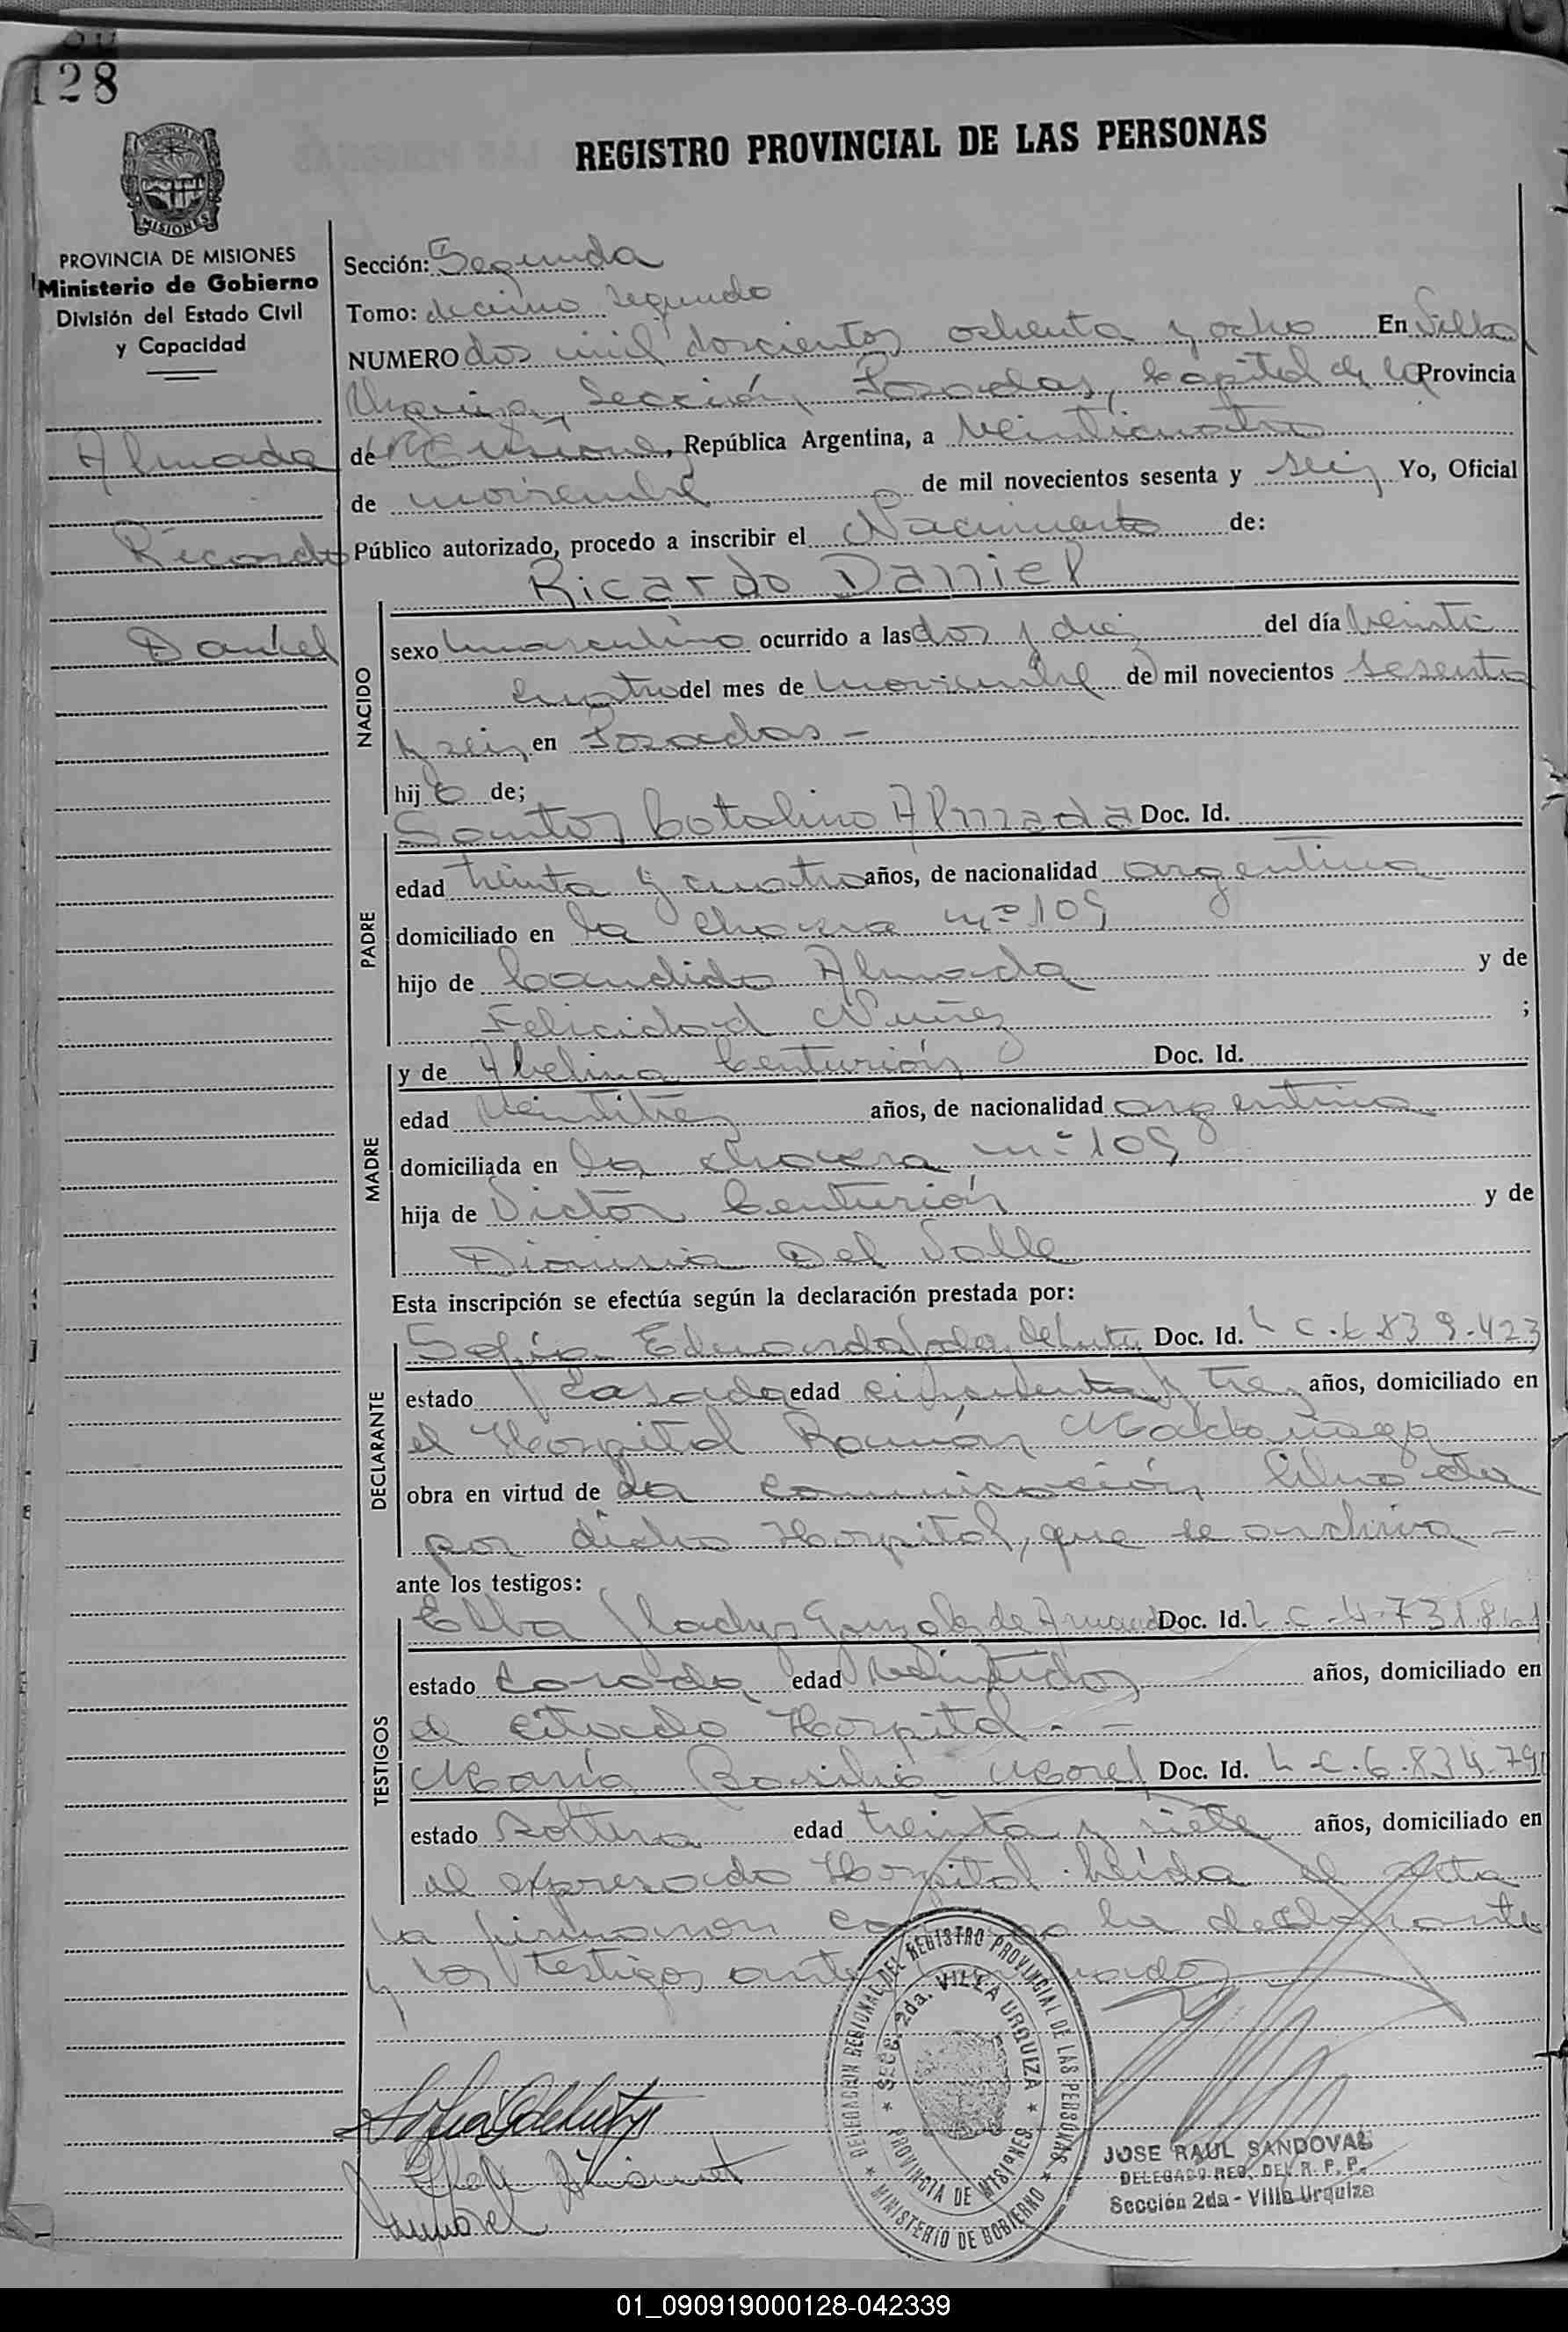 128
REGISTRO PROVINCIAL DE LAS PERSONAS
PROVINCIA DE MISIONES
MISIONES
PROVINCIA DE MISIONES
Ministerio de Gobierno
División del Estado Civil
y Capacidad
Almada
Ricardo
Daniel
Sección: Segunda
Tomo: decimo segundo
NUMERO dos mil doscientos ochenta y ocho En Villa
Urquiza, Sección Posadas, Capital de la Provincia
de Misiones, República Argentina, a veinticuatro
de noviembre de mil novecientos sesenta y seis Yo, Oficial
Público autorizado, procedo a inscribir el Nacimiento de:
Ricardo Daniel
NACIDO
sexo masculino ocurrido a las dos y diez del día veinti
cuatro del mes de noviembre de mil novecientos sesenta
y seis en Posadas -
hijo de;
PADRE
Santos Catalino Almada Doc. Id.
edad treinta y cuatro años, de nacionalidad argentina
domiciliado en la chacra nº 109
hijo de Candido Almada y de
Felicidad Nuñez ;
MADRE
y de Abelina Centurión Doc. Id.
edad veintitres años, de nacionalidad argentina
domiciliada en la chacra nº 109
hija de Victor Centurión y de
Dionisia Del Valle
Esta inscripción se efectúa según la declaración prestada por:
DECLARANTE
Sofía Doc. Id. L C. 6.839.423
estado Casada edad cincuenta y tres años, domiciliado en
el Hospital Ramón Madariaga
obra en virtud de la comunicación librada
por dicho Hospital, que se archiva -
ante los testigos:
TESTIGOS
Elba Gladys Gonzalez de Doc. Id. L. C. 4.731.861
estado casada edad veintidos años, domiciliado en
el citado Hospital. -
María Basilia Morel Doc. Id. L C. 6.834.79
estado Soltera edad treinta y siete años, domiciliado en
el expresado Hospital. Leída el acta
la firmaron la declarante
y los testigos
DELEGACION REGIONAL DEL REGISTRO PROVINCIAL DE LAS PERSONAS
Secc. 2da. VILLA URQUIZA
PROVINCIA DE MISIONES
MINISTERIO DE GOBIERNO
JOSE RAUL SANDOVAL
DELEGADO REG. DEL R. P. P.
Sección 2da - Villa Urquiza
01_090919000128-042339